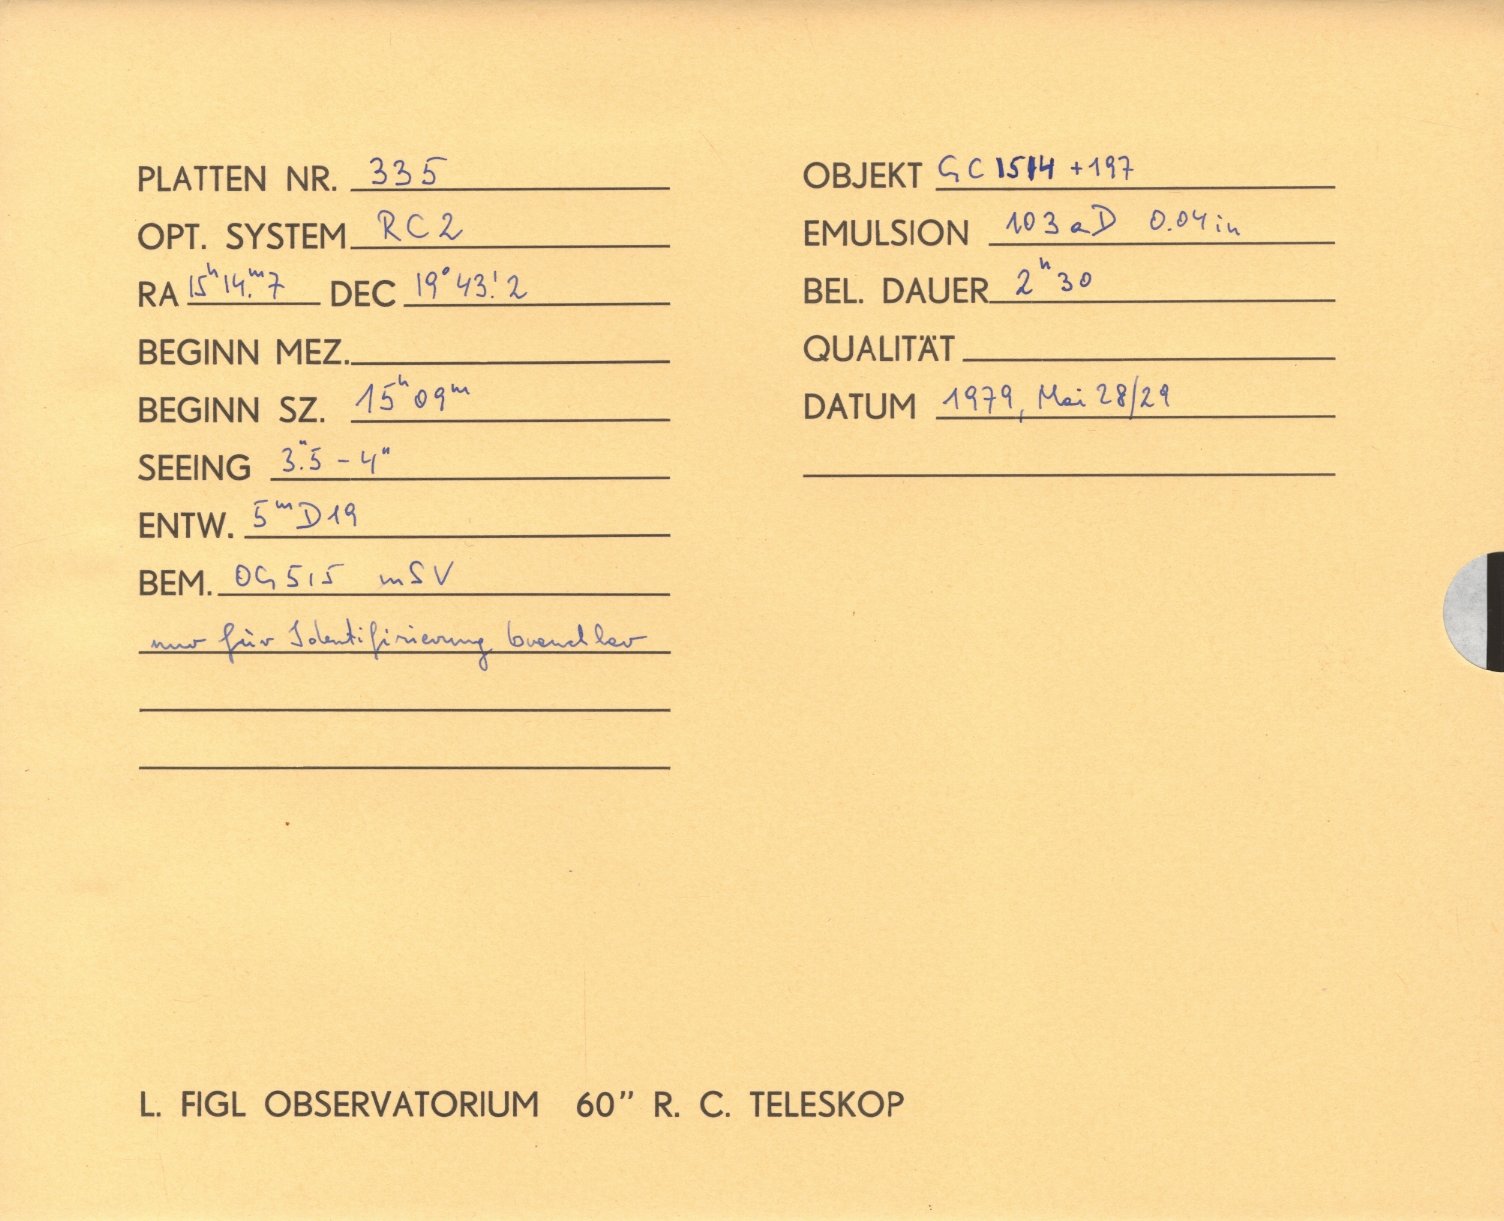 PLATTEN NR. 335
OPT. SYSTEM RC2
RA 15ʰ14.ᵐ7 DEC 19°43.'2
BEGINN MEZ.
BEGINN SZ. 15ʰ09ᵐ
SEEING 3."5 - 4"
ENTW. 5ᵐ D19
BEM. OG515 mSV
nur für Identifizierung brauchbar
OBJEKT GC 1514 +197
EMULSION 103aD 0.04in
BEL. DAUER 2ʰ30
QUALITÄT
DATUM 1979, Mai 28/29
L. FIGL OBSERVATORIUM 60" R. C. TELESKOP